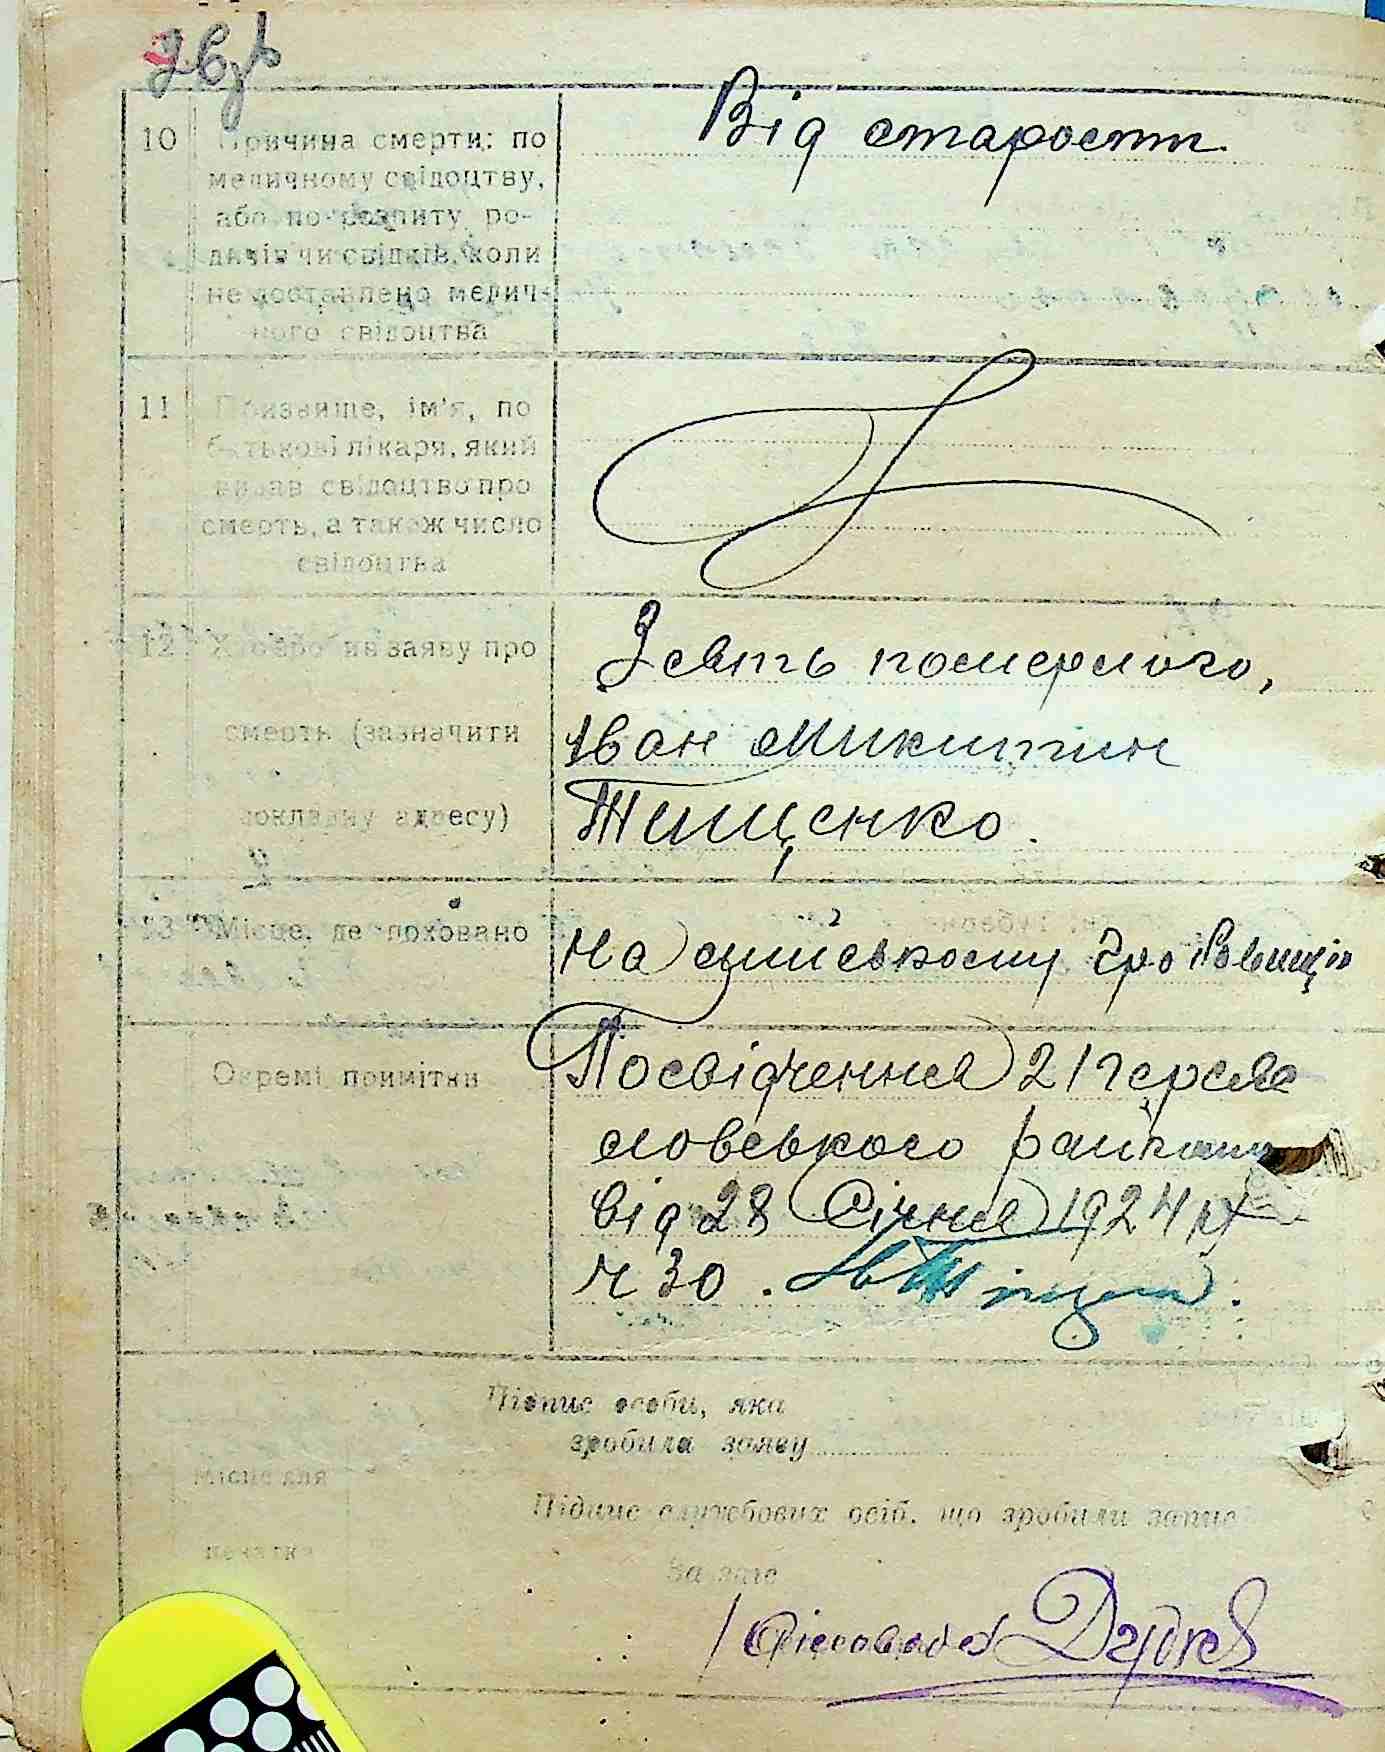 10
Причина смерти: по
медичному свідоцтву,
або по розпиту ро-
дичів чи свідків, коли
не доставлено медич-
ного свідоцтва
Від старости
11
Прізвище, ім'я, по
батькові лікаря, який
видав свідоцтво про
смерть, а також число
свідоцтва
12
Хто зробив заяву про
смерть (зазначити
докладну адресу)
Зять померлого,
Іван Микитин
Тищенко.
13
Місце, де поховано
На
Окремі примітки
Посвідчення
словського
від 28 Січня 1924 р
ч 30.
Підпис особи, яка
зробила заяву
Місце для
печатки
Підпис службових осіб, що зробили запис
За загс
Діловод